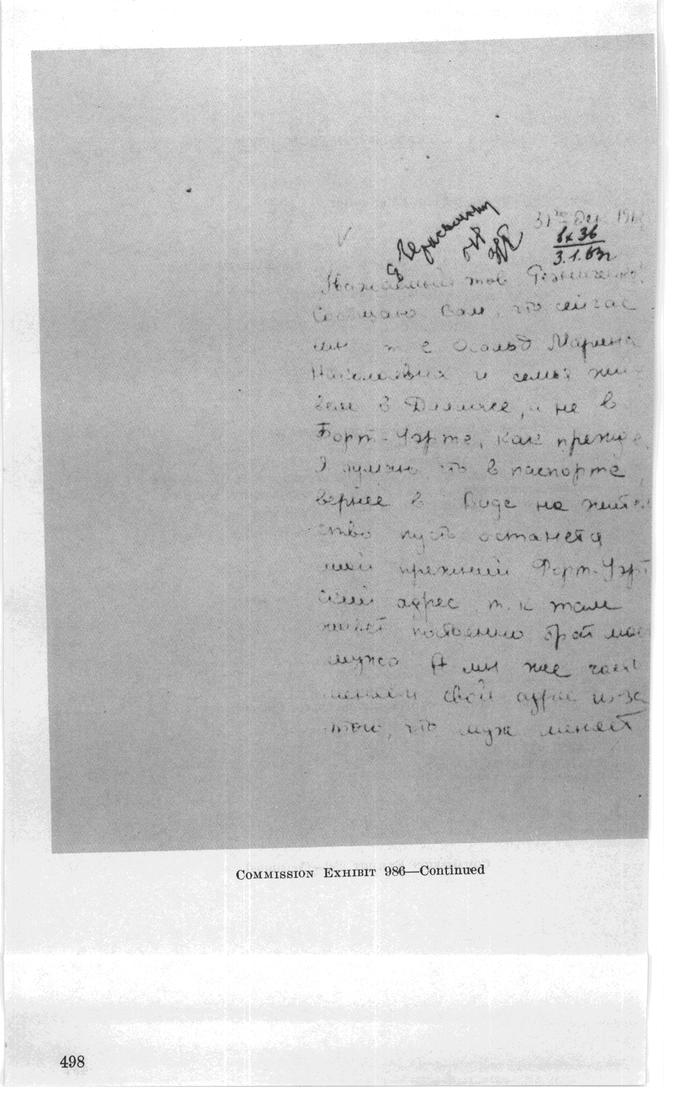 31 Дек 196
вх 36
3.1.63г
Уважаемый тов Резниченко!
Сообщаю Вам, что сейчас
мы т е Освальд Марина
Николаевна и семья жи-
вем в Далласе, и не в
Форт-Уэрте, как прежде.
Я думаю что в паспорте,
вернее в Виде на житель
ство пусть останется
мой прежний Форт-Уэрт
ский адрес, т. к там
живет постоянно брат моего
мужа А мы же часто
меняем свой адрес из-за
того, что муж меняет
COMMISSION EXHIBIT 986—Continued
498